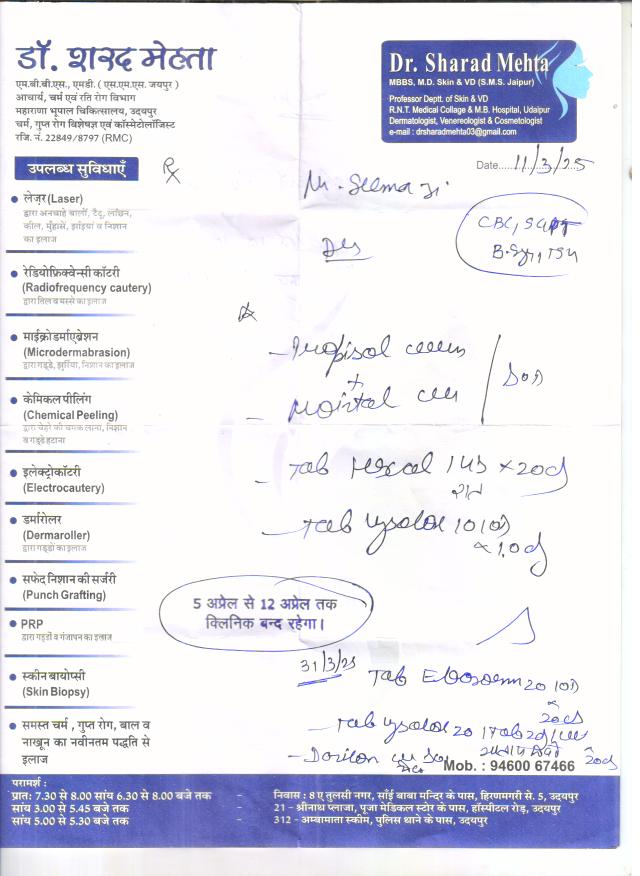 डॉ. शरद मेहता
एम.बी.बी.एस., एमडी. ( एस.एम.एस. जयपुर )
आचार्य, चर्म एवं रति रोग विभाग
महाराणा भूपाल चिकित्सालय, उदयपुर
चर्म, गुप्त रोग विशेषज्ञ एवं कॉस्मेटोलॉजिस्ट
रजि. नं. 22849/8797 (RMC)
Dr. Sharad Mehta
MBBS, M.D. Skin & VD (S.M.S. Jaipur)
Professor Deptt. of Skin & VD
R.N.T. Medical Collage & M.B. Hospital, Udaipur
Dermatologist, Venereologist & Cosmetologist
e-mail : drsharadmehta03@gmail.com
Date 11/3/25
उपलब्ध सुविधाएँ
लेज़र (Laser)
द्वारा अनचाहे बालों, टैटू, लांछन,
कील, मुँहासें, झांइयां व निशान
का इलाज
रेडियोफ्रिक्वेन्सी कॉटरी
(Radiofrequency cautery)
द्वारा तिल व मस्से का इलाज
माईक्रोडर्माएब्रेशन
(Microdermabrasion)
द्वारा गड्डे, झुर्रिया, निशान का इलाज
केमिकल पीलिंग
(Chemical Peeling)
द्वारा चेहरे की चमक लाना, निशान
व गड्डे हटाना
इलेक्ट्रोकॉटरी
(Electrocautery)
डर्मारोलर
(Dermaroller)
द्वारा गड्डो का इलाज
सफेद निशान की सर्जरी
(Punch Grafting)
PRP
द्वारा गड्डों व गंजापन का इलाज
स्कीन बायोप्सी
(Skin Biopsy)
समस्त चर्म , गुप्त रोग, बाल व
नाखून का नवीनतम पद्धति से
इलाज
Rx
Seema Ji
CBC, SGPT
TSH
+
Tab
x 20d
Tab
10
5 अप्रेल से 12 अप्रेल तक
क्लिनिक बन्द रहेगा।
31/3/25
Tab
20
20d
Tab
20
20d
Mob. : 94600 67466
परामर्श :
प्रात: 7.30 से 8.00 सांय 6.30 से 8.00 बजे तक - निवास : 8 ए तुलसी नगर, साँई बाबा मन्दिर के पास, हिरणमगरी से. 5, उदयपुर
सांय 3.00 से 5.45 बजे तक - 21 - श्रीनाथ प्लाजा, पूजा मेडिकल स्टोर के पास, हॉस्पीटल रोड़, उदयपुर
सांय 5.00 से 5.30 बजे तक - 312 - अम्बामाता स्कीम, पुलिस थाने के पास, उदयपुर